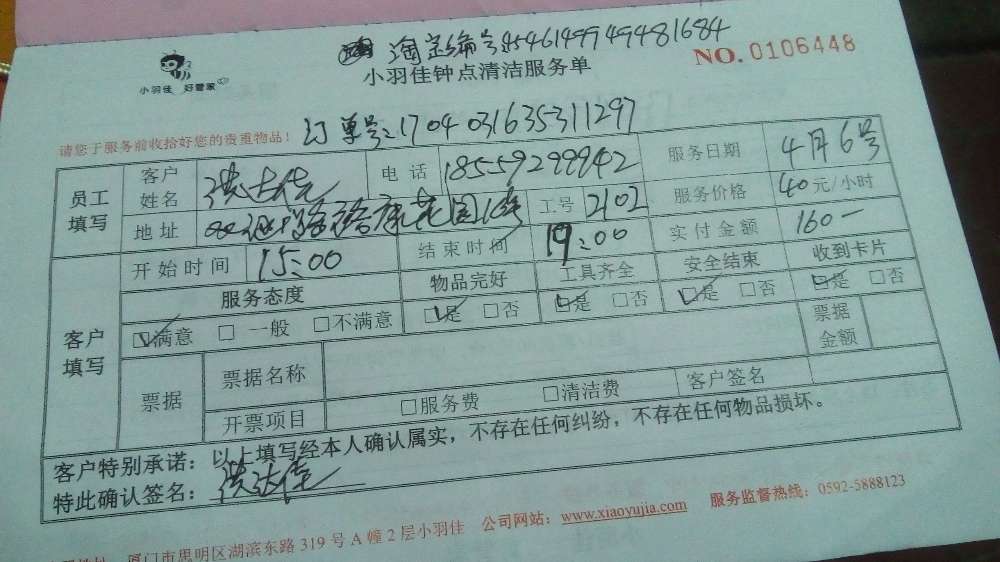 淘宝编号
小羽佳 好管家
小羽佳钟点清洁服务单
NO. 0106448
请您于服务前收拾好您的贵重物品！
订单号：170403163535311297
员工填写 客户姓名 洪达佳 电话 18559299942 服务日期 4月6号
地址 花园 工号 2102 服务价格 40元/小时
开始时间 15:00 结束时间 19:00 实付金额 160—
客户填写 服务态度 物品完好 工具齐全 安全结束 收到卡片
满意 一般 不满意 是 否 是 否 是 否 是 否
票据 票据名称 票据金额
开票项目 服务费 清洁费 客户签名
客户特别承诺：以上填写经本人确认属实，不存在任何纠纷，不存在任何物品损坏。
特此确认签名：洪达佳
厦门市思明区湖滨东路319号A幢2层小羽佳 公司网站：www.xiaoyujia.com 服务监督热线：0592-5888123